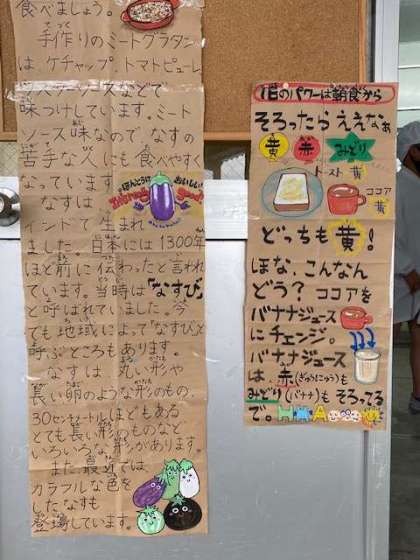 食べましょう。
手作りのミートグラタン
は、ケチャップ、トマトピューレ
ソースなどで
味つけしています。ミート
ソース味なので、なすの
苦手な人にも食べやすく
なっています。
なすは、
インドで生まれ
ました。日本には1300年
ほど前に伝わったと言われ
ています。当時は「なすび」
と呼ばれていました。今
でも地域によって「なすび」と
呼ぶところもあります。
なすは、丸い形や
長い卵のような形のもの、
30センチメートルほどもある
とても長い形のものなど
いろいろな形があります。
また、最近では、
カラフルな色を
したなすも
登場しています。
1日のパワーは朝食から
そろったらええなぁ
黄 赤 みどり
トースト 黄
ココア 黄
どっちも黄!
ほな、こんなん
どう? ココアを
バナナジュース
にチェンジ。
バナナジュース
は、赤(ぎゅうにゅう)も
みどり(バナナ)もそろってる
で。